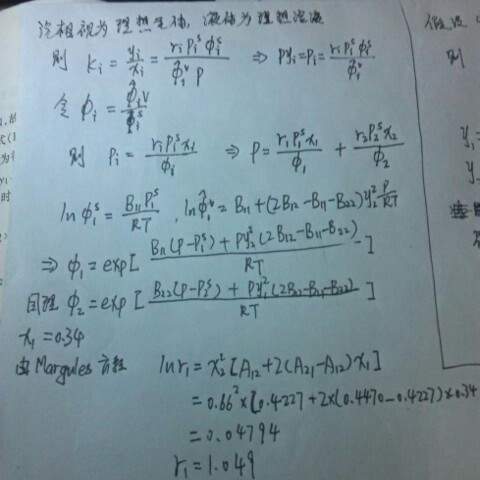 汽相视为理想气体，液体为理想溶液
则 Ki = yi/xi = ri Pi^s φi^s / (φ̂i^v P) ⇒ Pyi = Pi = ri Pi^s φi^s / φ̂i^v
令 φi = φ̂i^v / φi^s
则 Pi = ri Pi^s xi / φi ⇒ P = r1 P1^s x1 / φ1 + r2 P2^s x2 / φ2
ln φi^s = B11 Pi^s / RT , ln φ̂i^v = B11 + (2B12 - B11 - B22) y2^2 P/RT
⇒ φ1 = exp[ (B11(P - P1^s) + P y2^2 (2B12 - B11 - B22)) / RT ]
同理 φ2 = exp[ (B22(P - P2^s) + P y1^2 (2B12 - B11 - B22)) / RT ]
x1 = 0.34
由 Margules 方程 ln r1 = x2^2 [A12 + 2(A21 - A12) x1]
= 0.66^2 × [0.4227 + 2×(0.4470 - 0.4227)×0.34
= 0.04794
r1 = 1.049
则
y1 =
y